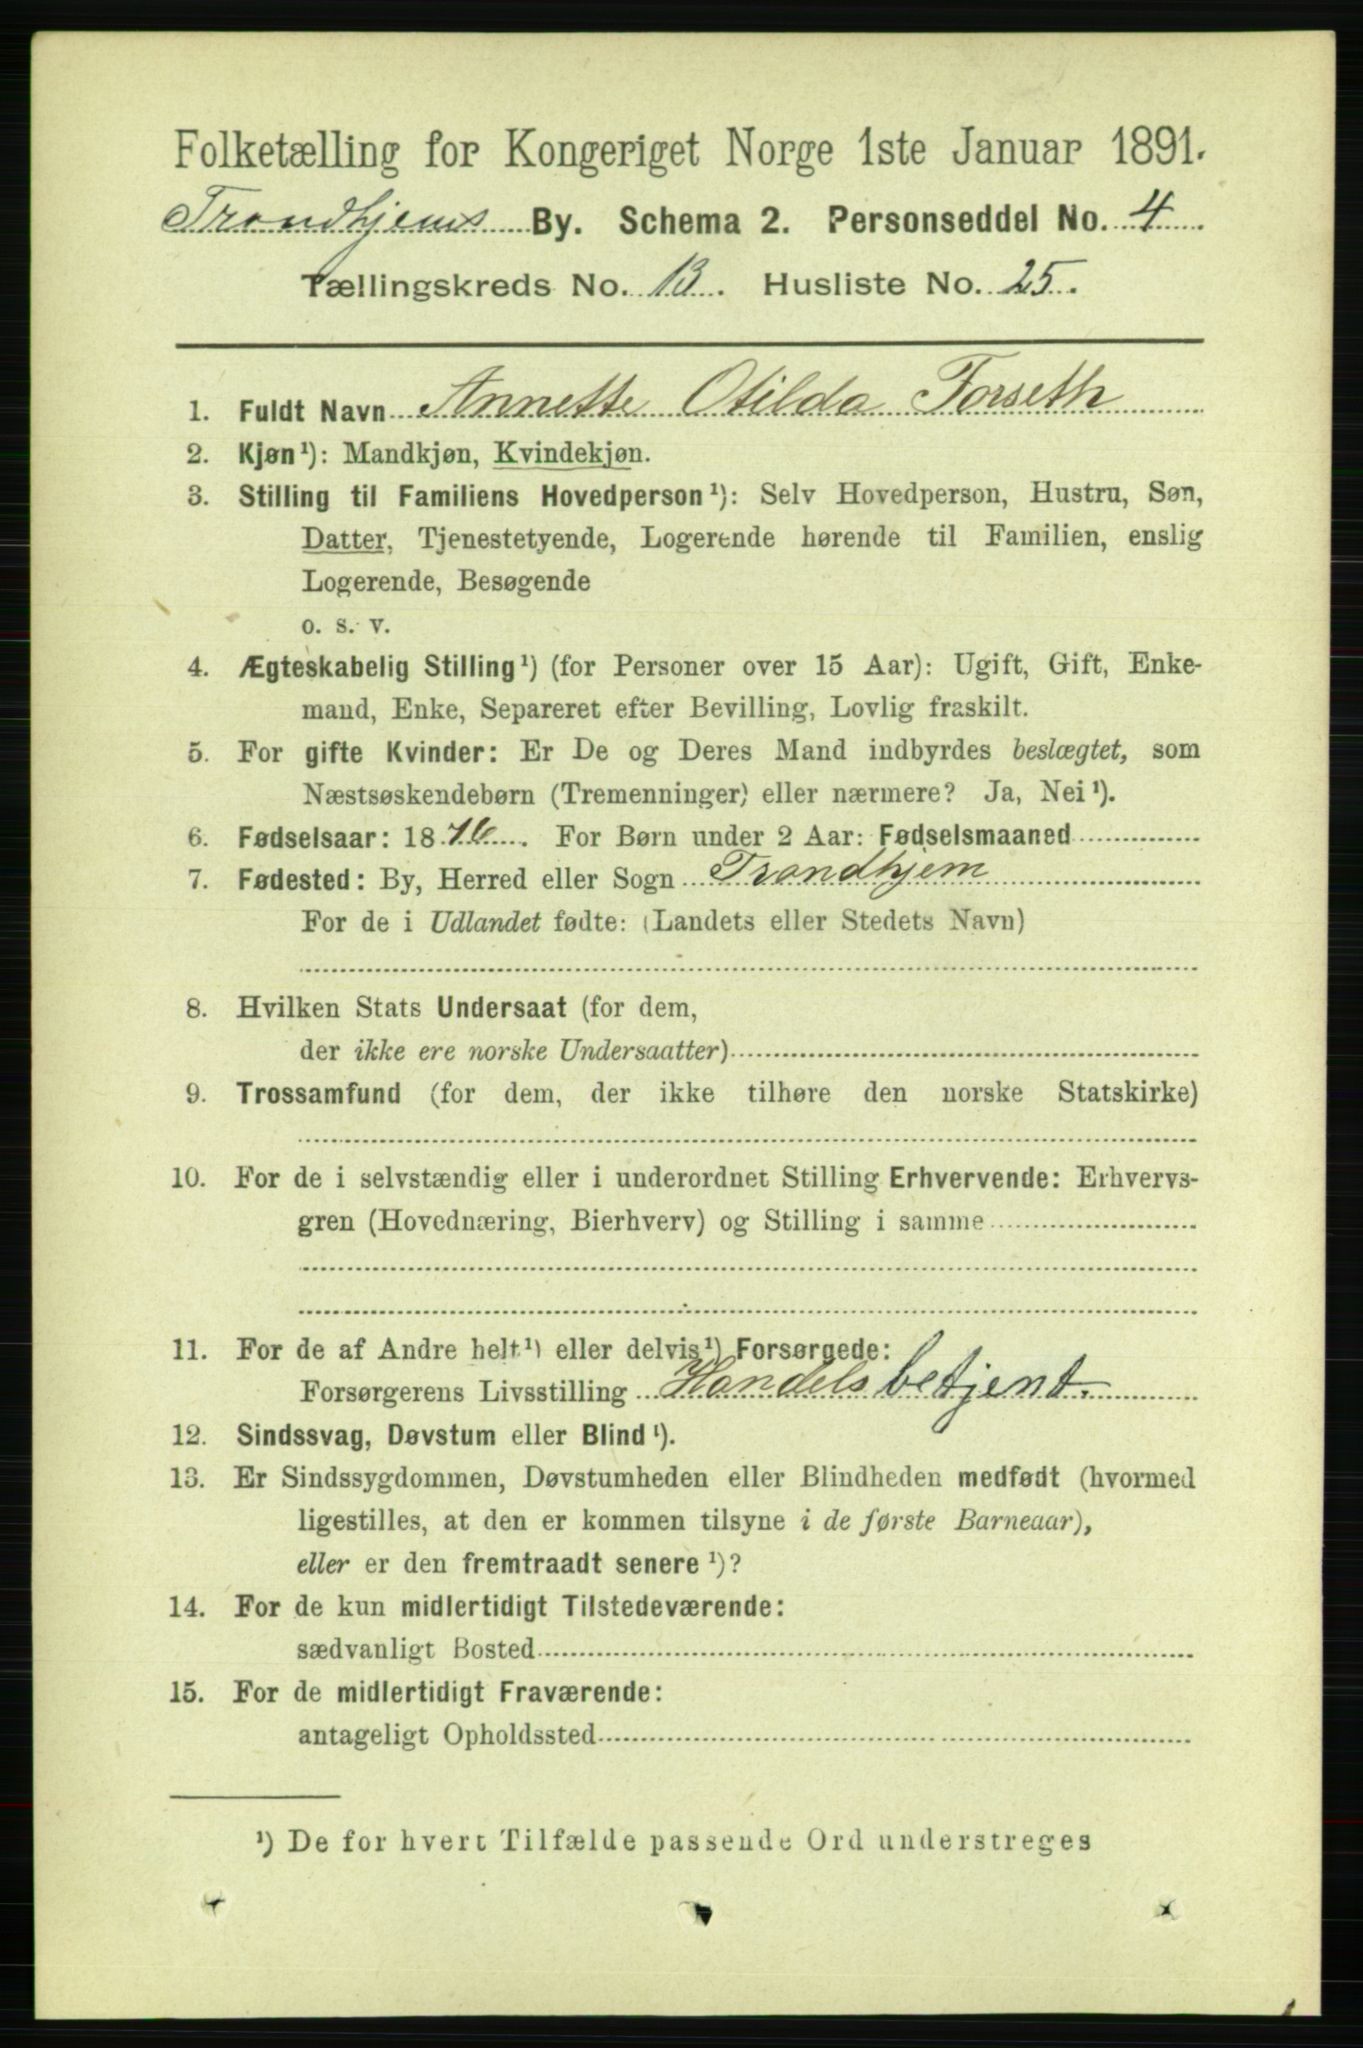 Folketælling for Kongeriget Norge 1ste Januar 1891.
Trondhjems By. Schema 2. Personseddel No. 4.
Tællingskreds No. 13. Husliste No. 25.
1. Fuldt Navn Annette Otilda Forseth
2. Kjøn¹): Mandkjøn, Kvindekjøn.
3. Stilling til Familiens Hovedperson¹): Selv Hovedperson, Hustru, Søn,
Datter, Tjenestetyende, Logerende hørende til Familien, enslig
Logerende, Besøgende
o. s. v.
4. Ægteskabelig Stilling¹) (for Personer over 15 Aar): Ugift, Gift, Enke-
mand, Enke, Separeret efter Bevilling, Lovlig fraskilt.
5. For gifte Kvinder: Er De og Deres Mand indbyrdes beslægtet, som
Næstsøskendebørn (Tremenninger) eller nærmere? Ja, Nei¹).
6. Fødselsaar: 1876. For Børn under 2 Aar: Fødselsmaaned
7. Fødested: By, Herred eller Sogn Trondhjem
For de i Udlandet fødte: (Landets eller Stedets Navn)
8. Hvilken Stats Undersaat (for dem,
der ikke ere norske Undersaatter)
9. Trossamfund (for dem, der ikke tilhøre den norske Statskirke)
10. For de i selvstændig eller i underordnet Stilling Erhvervende: Erhvervs-
gren (Hovednæring, Bierhverv) og Stilling i samme
11. For de af Andre helt¹) eller delvis¹) Forsørgede:
Forsørgerens Livsstilling Handelsbetjent.
12. Sindssvag, Døvstum eller Blind¹).
13. Er Sindssygdommen, Døvstumheden eller Blindheden medfødt (hvormed
ligestilles, at den er kommen tilsyne i de første Barneaar),
eller er den fremtraadt senere¹)?
14. For de kun midlertidigt Tilstedeværende:
sædvanligt Bosted
15. For de midlertidigt Fraværende:
antageligt Opholdssted
¹) De for hvert Tilfælde passende Ord understreges